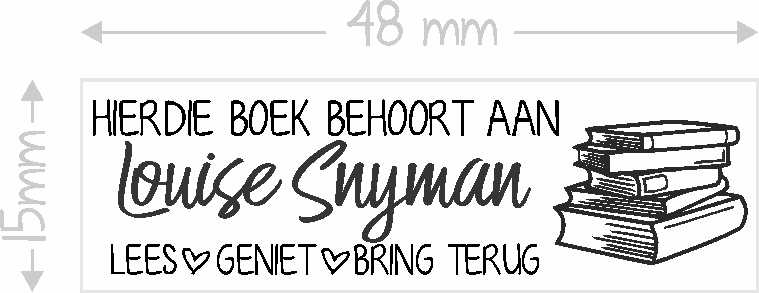 48 mm
15mm
HIERDIE BOEK BEHOORT AAN
Louise Snyman
LEES♡GENIET♡BRING TERUG